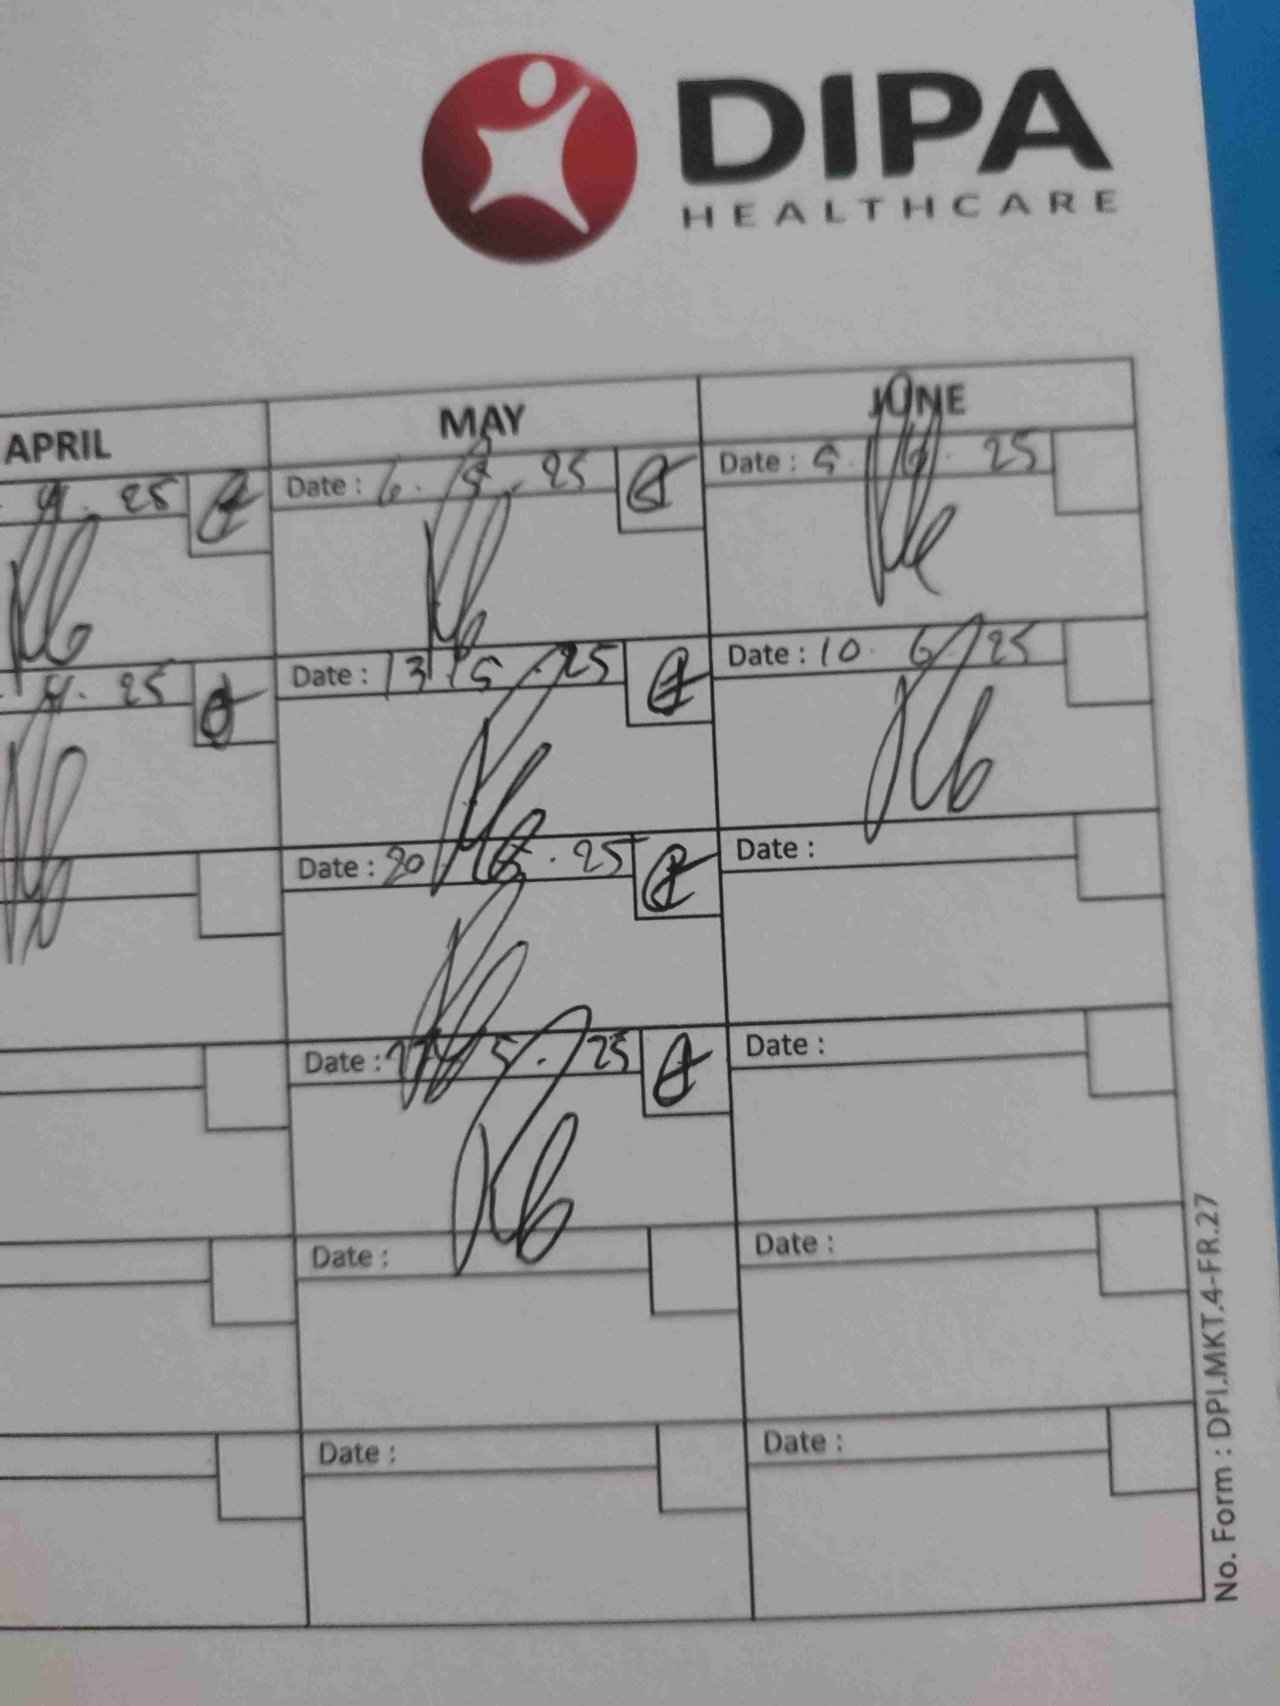 DIPA
HEALTHCARE
APRIL MAY JUNE
4. 25 Date : 6. 5. 25 Date : 5. 6. 25
4. 25 Date : 13 5 . 25 Date : 10. 6. 25
Date : 20 . 5 . 25 Date :
Date : 27 5 . 25 Date :
Date : Date :
Date : Date :
No. Form : DPI.MKT.4-FR.27